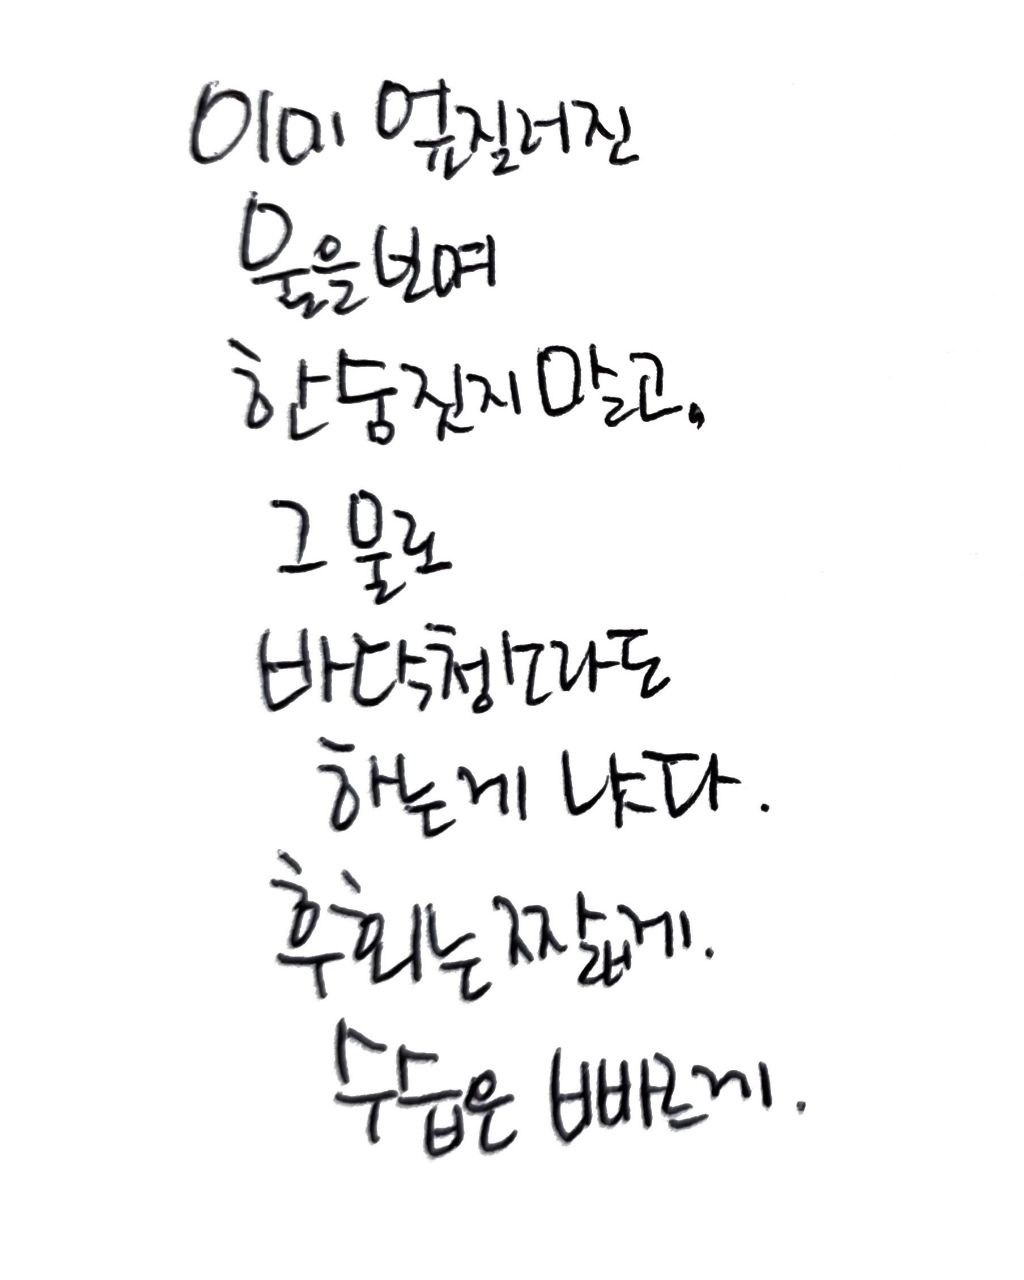 이미 엎질러진
물을 보며
한숨 짓지 말고,
그 물로
바닥청소라도
하는게 낫다.
후회는 짧게.
수습은 빠르게.